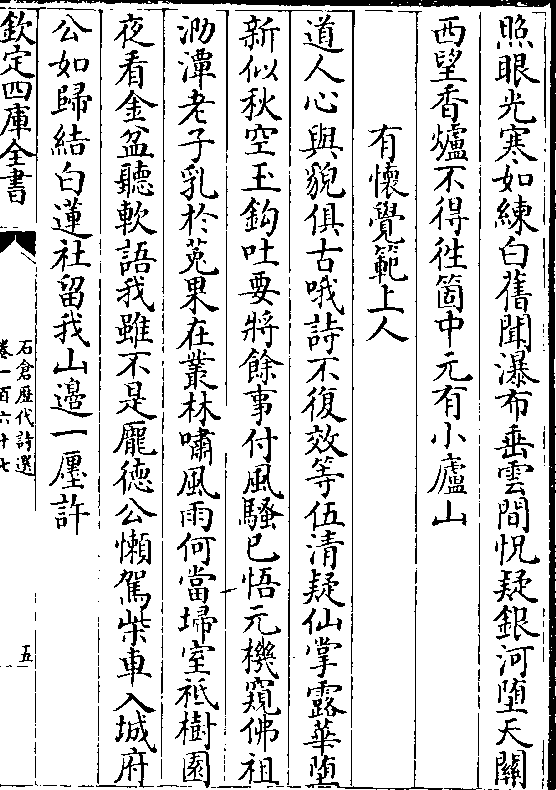 照眼光寒如練白舊聞瀑布垂雲間怳疑銀河墮天關
西望香爐不得徃箇中元有小廬山
有懷覺範上人
道人心與貌俱古哦詩不復效等伍清疑仙掌露華墮
新似秋空玉鈎吐要將餘事付風騷已悟元機窺佛祖
泐潭老子乳於菟果在叢林嘯風雨何當埽室祗樹園
夜看金盆聽軟語我雖不是龎德公懶駕柴車入城府
公如歸結白蓮社留我山邉一廛許
欽定四庫全書
石倉歷代詩選
卷一百六十七
五